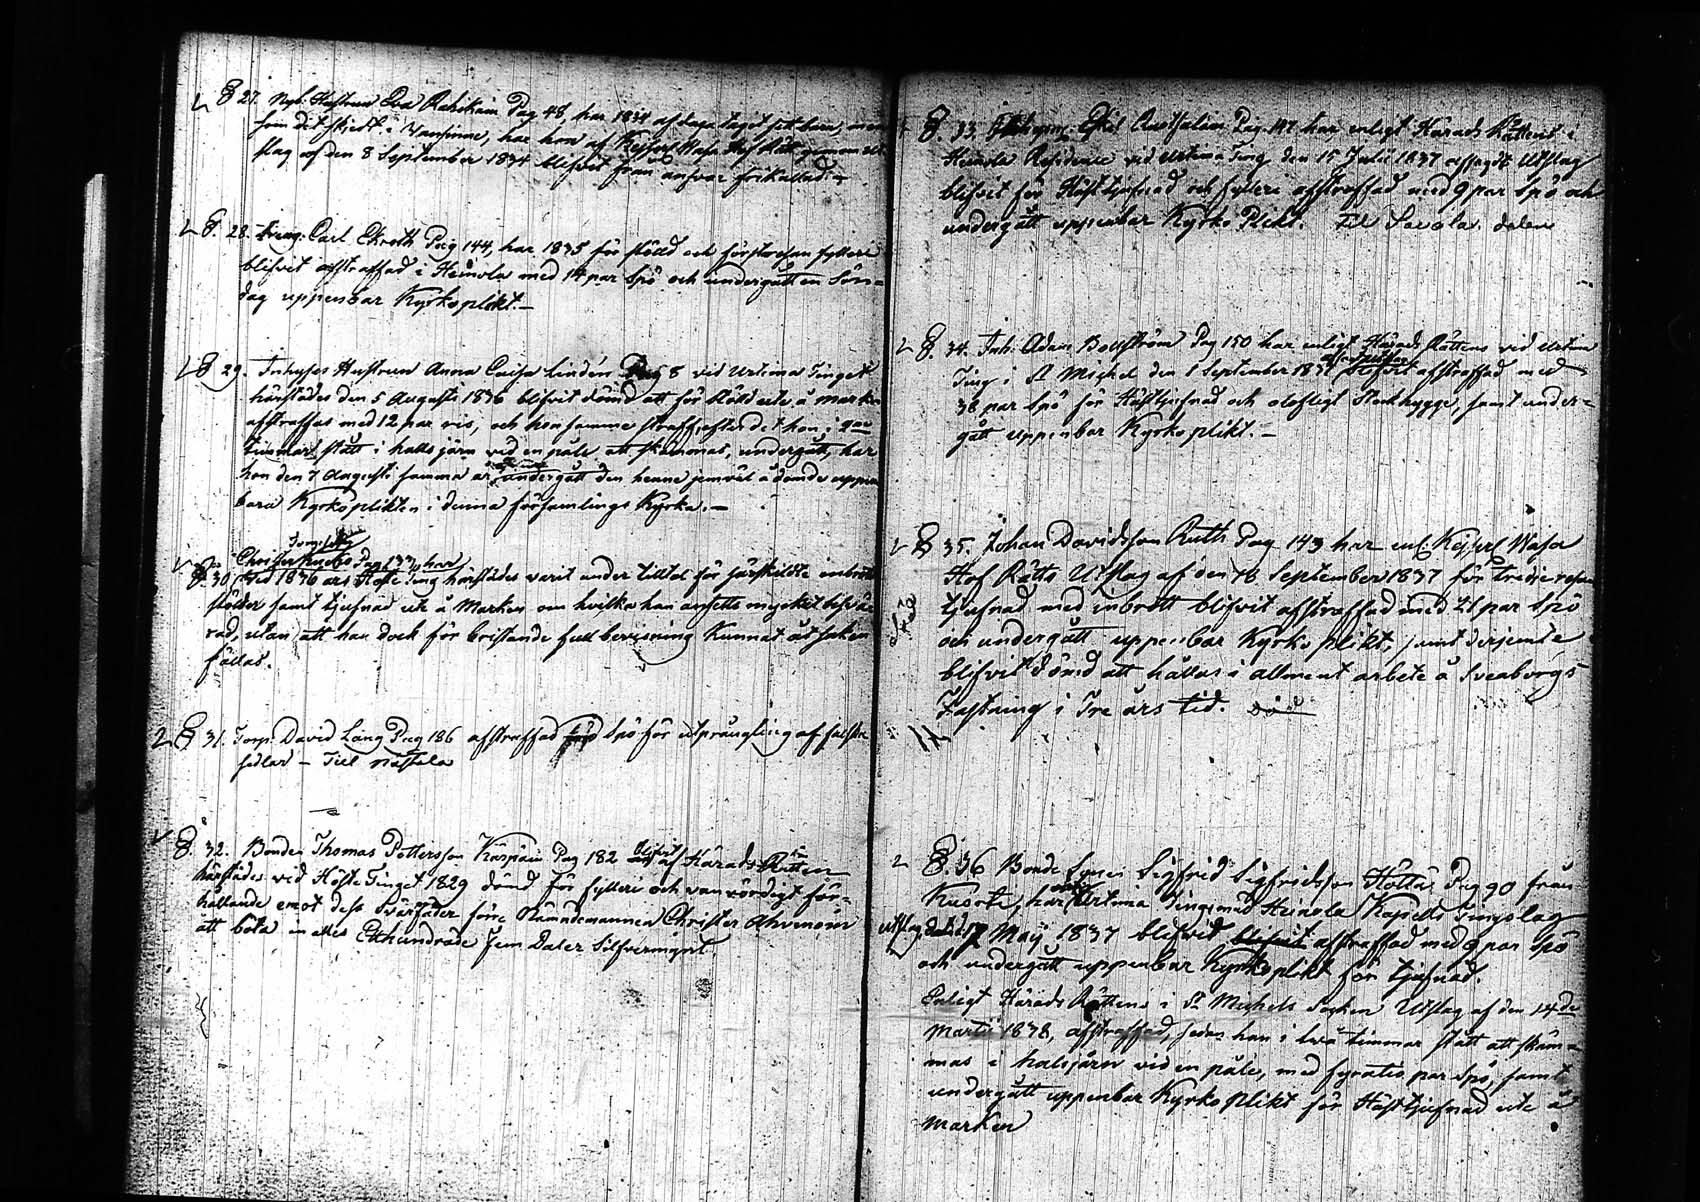 § 27. Nyb. Hustrun Eva Pag 48, har 1834 af daga tagit sitt barn, men
som det skjedt i Vansinne, har hon af Keijserl. Wasa Hof Rätt genom Ut-
slag af den 8 September 1834 blifvit från ansvar frikallad. –
§. 28. Carl Ekroth Pag 144, har 1835 för stöld och första resan fylleri
blifvit afstraffad i Heinola med 14 par Spö och undergått en Sön-
dag uppenbar Kyrkoplikt. –
§ 29. Inhyses Hustrun Anna Caisa Lindén Pag 8 vid Urtima Tinget
härstädes den 5 Augusti 1836 blifvit dömd att för stöld ute å marken
afstraffas med 12 par ris, och hon samma straff, efter det hon i två
timmar stått i halsjärn vid en påle att skämmas, undergått, har
hon den 7 Augusti samma år undergått den henne jemväl ådömde uppen-
bara Kyrkoplikten i denna församlings Kyrka. –
Christer Pag 133, har
§. 30. Vid 1836 års Höste Ting härstädes varit under tilltal för särskildte inbrotts
stölder samt tjufnad ute å Marken om hvilka han ansetts mycket besvä-
rad, utan att han dock för bristande full bevisning Kunnat åt saken
fällas.
§ 31. Torp. David Lang Pag 186 afstraffad med spö för utprångling af falska
sedlar – Till Nastola
§. 32. Bonden Thomas Pettersson Pag 182 blifvit af Härads Rätten
härstädes vid Höste Tinget 1829 dömd för fylleri och vanvördigt för-
hållande emot dess Svärfader förre Nämndemannen Christer Ahvonen
att böta in alles Etthundrade fem Daler Silfvermynt.
§. 33. Pag. 147 har, enligt Härads Rättens i
Heinola Residence vid Urtima Ting den 15 Julii 1837 afsagde Utslag
blifvit för Hösttjufnad och fylleri afstraffad med 9 par Spö och
undergått uppenbar Kyrko Plikt. Till Savola delen
§. 34. Inh. Adam Bollström Pag 150 har enligt Härads Rättens vid Urtima
Ting i St Michel den 1 September 1837 blifvit afstraffad med
38 par Spö för Hästtjufnad och olofligt Stockhygge, samt under-
gått uppenbar Kyrkoplikt. –
§ 35. Johan Davidsson Ruth Pag 143 har enl. Keijserl Wasa
Hof Rätts Utslag af den 18 September 1837 för tredje resan
tjufnad med inbrott blifvit afstraffad med 21 par Spö
och undergått uppenbar Kyrko plikt, samt derjemte
blifvit dömd att hållas i allment arbete å Sveaborgs
Fästning i Tre års tid. död
§. 36 Bonde Sonen Sigfrid Sigfridsson Hölttä Pag 90 från
Kuorti, har vid Urtima Ting med Heinola Kapells Tingslag
utslag dat. d. 17 Maij 1837 blifvit blifvit afstraffad med 9 par Spö
och undergått uppenbar Kyrkoplikt för tjufnad.
Enligt Härads Rättens i St Michels Socken Utslag af den 14de
Martii 1838, afstraffad, sedan han i två timmar stått att skäm-
mas i halsjärn vid en påle, med fyratio par Spö, samt
undergått uppenbar Kyrkoplikt för Hästtjufnad ute å
marken